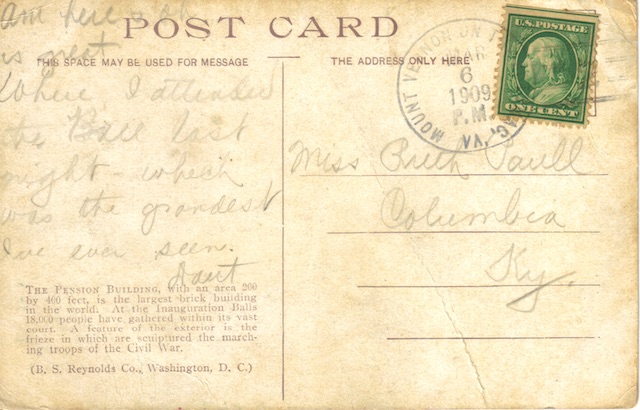 POST CARD
THIS SPACE MAY BE USED FOR MESSAGE
THE ADDRESS ONLY HERE
am here - oh
is great
Where I attended
the Ball last
night - which
was the grandest
I've ever seen.
Aunt
THE PENSION BUILDING, with an area 200
by 400 feet, is the largest brick building
in the world. At the Inauguration Balls
18,000 people have gathered within its vast
court. A feature of the exterior is the
frieze in which are sculptured the march-
ing troops of the Civil War.
(B. S. Reynolds Co., Washington, D. C.)
MOUNT VERNON ON THE
VA.
MAR
6
1909
P.M.
U.S. POSTAGE
ONE CENT
Miss Ruth Paull
Columbia
Ky.